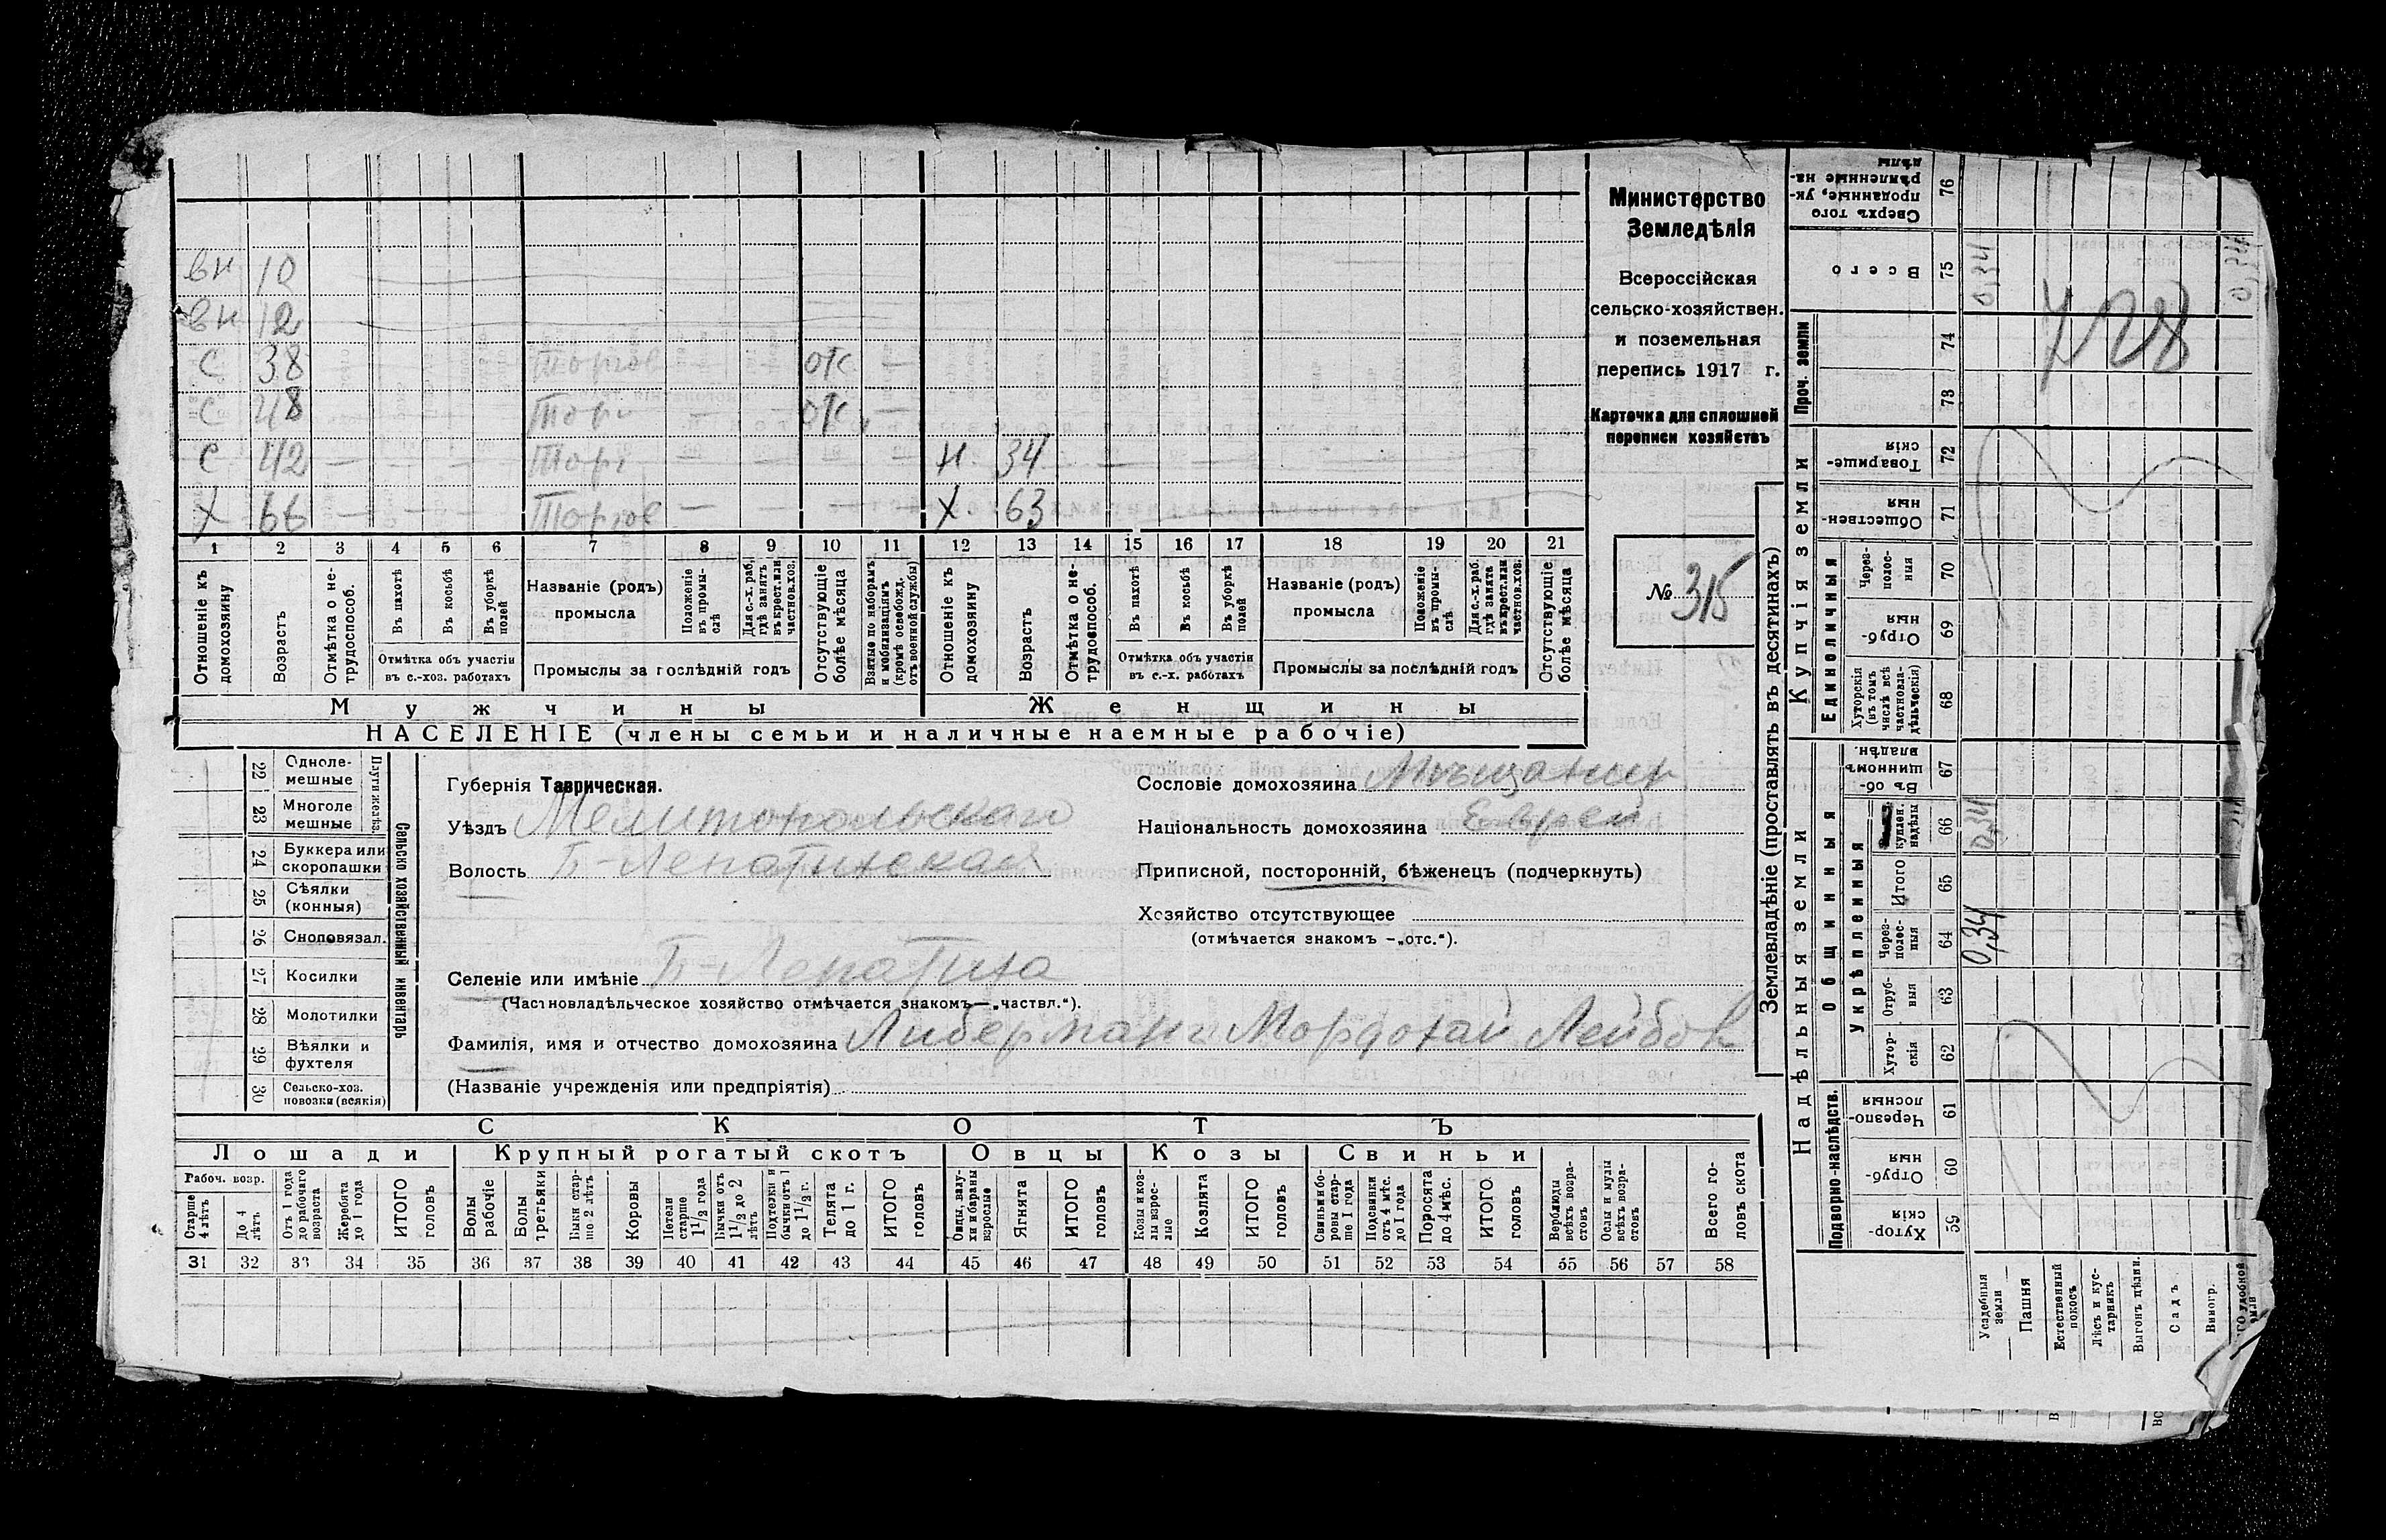 вн 10
вн 12
с 38 Торгов — — отс —
с 48 Торг — — отс —
с 42 — — — — Торг — — — — н 34 —
х 66 — — — — Торгов — — — — х 63
1 2 3 4 5 6 7 8 9 10 11 12 13 14 15 16 17 18 19 20 21
Отношеніе къ домохозяину
Возрастъ
Отмѣтка о не-трудоспособ.
Въ пахотѣ
Въ косьбѣ
Въ уборкѣ полей
Отмѣтка объ участіи
въ с.-хоз. работахъ
Названіе (родъ)
промысла
Положеніе въ промы-слѣ
Для с.-х. раб, гдѣ занятъ въ крест. или частнов. хоз.
Промыслы за послѣдній годъ
Отсутствующіе болѣе мѣсяца
Взятые по наборамъ и мобилизаціямъ (кромѣ освобожд. отъ военной службы)
Отношеніе къ домохозяину
Возрастъ
Отмѣтка о не-трудоспособ.
Въ пахотѣ
Въ косьбѣ
Въ уборкѣ полей
Отмѣтка объ участіи
въ с.-х. работахъ
Названіе (родъ)
промысла
Положеніе въ промы-слѣ
Для с.-х. раб. гдѣ занята въ крест. или частнов. хоз.
Промыслы за послѣдній годъ
Отсутствующіе болѣе мѣсяца
Мужчины Женщины
НАСЕЛЕНІЕ (члены семьи и наличные наемные рабочіе)
Министерство
Земледѣлія
Всероссійская
сельско-хозяйствен.
и поземельная
перепись 1917 г.
Карточка для сплошной
переписи хозяйствъ
№ 315
22 Однолемешные
23 Многолемешные
Плуги желѣз.
24 Буккера или скоропашки
25 Сѣялки (конныя)
26 Сноповязал.
27 Косилки
28 Молотилки
29 Вѣялки и фухтеля
30 Сельско-хоз. повозки (всякія)
Сельско хозяйственный инвентарь
Губернія Таврическая.
Уѣздъ Мелитопольскаго
Волость Б-Лепатихская
Селеніе или имѣніе Б-Лепатиха
(Частновладѣльческое хозяйство отмѣчается знакомъ—„частвл.“).
Фамилія, имя и отчество домохозяина Либерманъ Мордохай Лейбов
(Названіе учрежденія или предпріятія)
Сословіе домохозяина Мѣщанин
Національность домохозяина Еврей
Приписной, посторонній, бѣженецъ (подчеркнуть)
Хозяйство отсутствующее
(отмѣчается знакомъ —„отс.“).
СКОТЪ
Лошади Крупный рогатый скотъ Овцы Козы Свиньи
Рабоч. возр.
Старше 4 лѣтъ
До 4 лѣтъ
Отъ 1 года до рабочаго возраста
Жеребята до 1 года
ИТОГО головъ
Волы рабочіе
Волы третьяки
Быки стар-ше 2 лѣтъ
Коровы
Нетели старше 1 1/2 года
Бычки отъ 1 1/2 до 2 лѣтъ
Подтелки и бычки отъ 1 до 1 1/2 г.
Телята до 1 г.
ИТОГО головъ
Овцы, валу-хи и бараны взрослые
Ягнята
ИТОГО головъ
Козы и коз-лы взрос-лые
Козлята
ИТОГО головъ
Свиньи и бо-ровы стар-ше 1 года
Подсвинки отъ 4 мѣс. до 1 года
Поросята до 4 мѣс.
ИТОГО головъ
Верблюды всѣхъ возра-стовъ
Ослы и мулы всѣхъ возра-стовъ
Всего го-ловъ скота
31 32 33 34 35 36 37 38 39 40 41 42 43 44 45 46 47 48 49 50 51 52 53 54 55 56 57 58
Землевладѣніе (проставлять въ десятинахъ)
Надѣльныя земли
Купчія земли
Проч. земли
Подворно-наслѣдств.
Общинныя
Укрѣпленныя
Единоличныя
Хутор-скія 59
Отруб-ныя 60
Черезпо-лосныя 61
Хутор-скія 62
Отруб-ныя 63
Через-полос-ныя 64
Итого 65
куплен. надѣлы 66
Въ об-щинномъ владѣн. 67
Хуторскія (въ томъ числѣ всѣ частновла-дѣльческія) 68
Отруб-ныя 69
Через-полос-ныя 70
Обществен-ныя 71
Товарище-скія 72
73
74
Всего 75
Сверхъ того проданные, ук-рѣпленные на-дѣлы 76
0,34
0,34
0,34
0,34
Усадебныя земли
Пашня
Естественный покосъ
Лѣсъ и кус-тарникъ
Выгонъ цѣлин.
Садъ
Виногр.